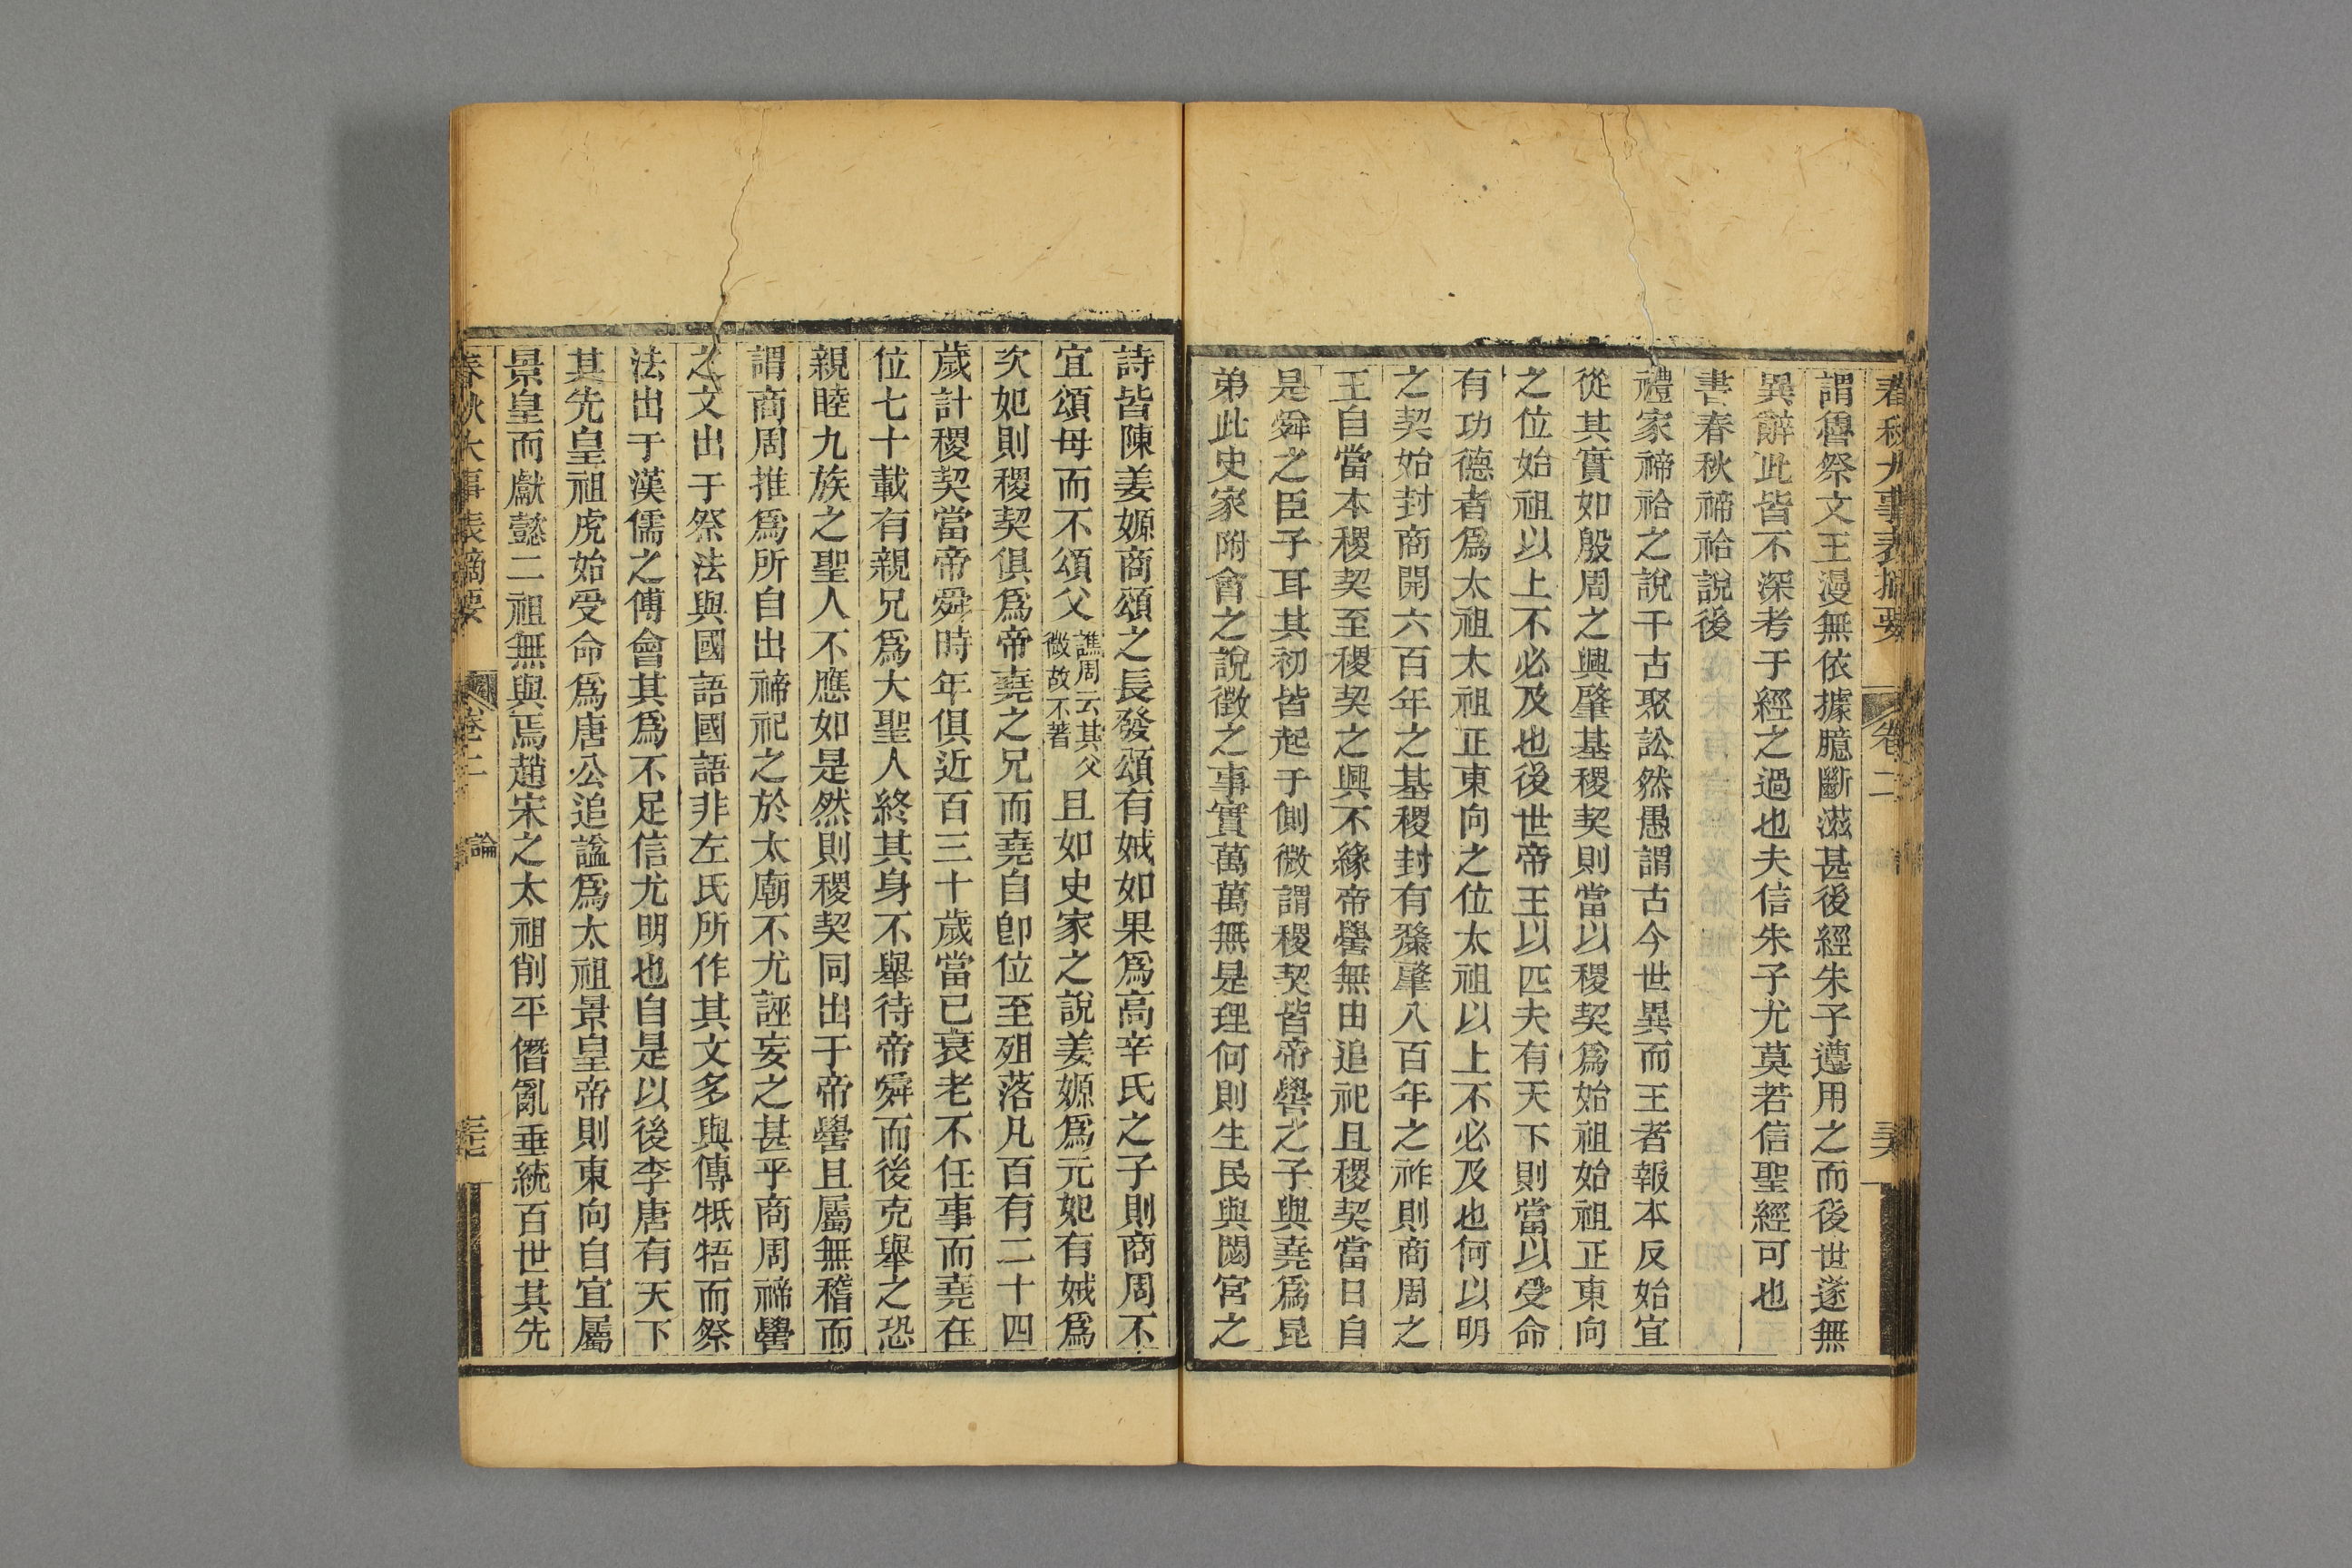 春秋大事表摘要 卷二 論
謂魯祭文王漫無依據臆斷滋甚後經朱子遵用之而後世遂無
異辭此皆不深考于經之過也夫信朱子尤莫若信聖經可也
書春秋禘祫說後
禮家禘祫之說千古聚訟然愚謂古今世異而王者報本反始宜
從其實如殷周之興肇基稷契則當以稷契爲始祖始祖正東向
之位始祖以上不必及也後世帝王以匹夫有天下則當以受命
有功德者爲太祖太祖正東向之位太祖以上不必及也何以明
之契始封商開六百年之基稷封有漦肇八百年之祚則商周之
王自當本稷契至稷契之興不緣帝嚳無由追祀且稷契當日自
是舜之臣子耳其初皆起于側微謂稷契皆帝嚳之子與堯爲昆
弟此史家附會之說徵之事實萬萬無是理何則生民與閟宮之
詩皆陳姜嫄商頌之長發頌有娀如果爲高辛氏之子則商周不
宜頌母而不頌父譙周云其父微故不著且如史家之說姜嫄爲元妃有娀爲
次妃則稷契俱爲帝堯之兄而堯自卽位至殂落凡百有二十四
歲計稷契當帝舜時年俱近百三十歲當已衰老不任事而堯在
位七十載有親兄爲大聖人終其身不舉待帝舜而後克舉之恐
親睦九族之聖人不應如是然則稷契同出于帝嚳且屬無稽而
謂商周推爲所自出禘祀之於太廟不尤誣妄之甚乎商周禘嚳
之文出于祭法與國語國語非左氏所作其文多與傳牴牾而祭
法出于漢儒之傅會其爲不足信尤明也自是以後李唐有天下
其先皇祖虎始受命爲唐公追諡爲太祖景皇帝則東向自宜屬
景皇而獻懿二祖無與焉趙宋之太祖削平僭亂垂統百世其先
春秋大事表摘要 卷二 論